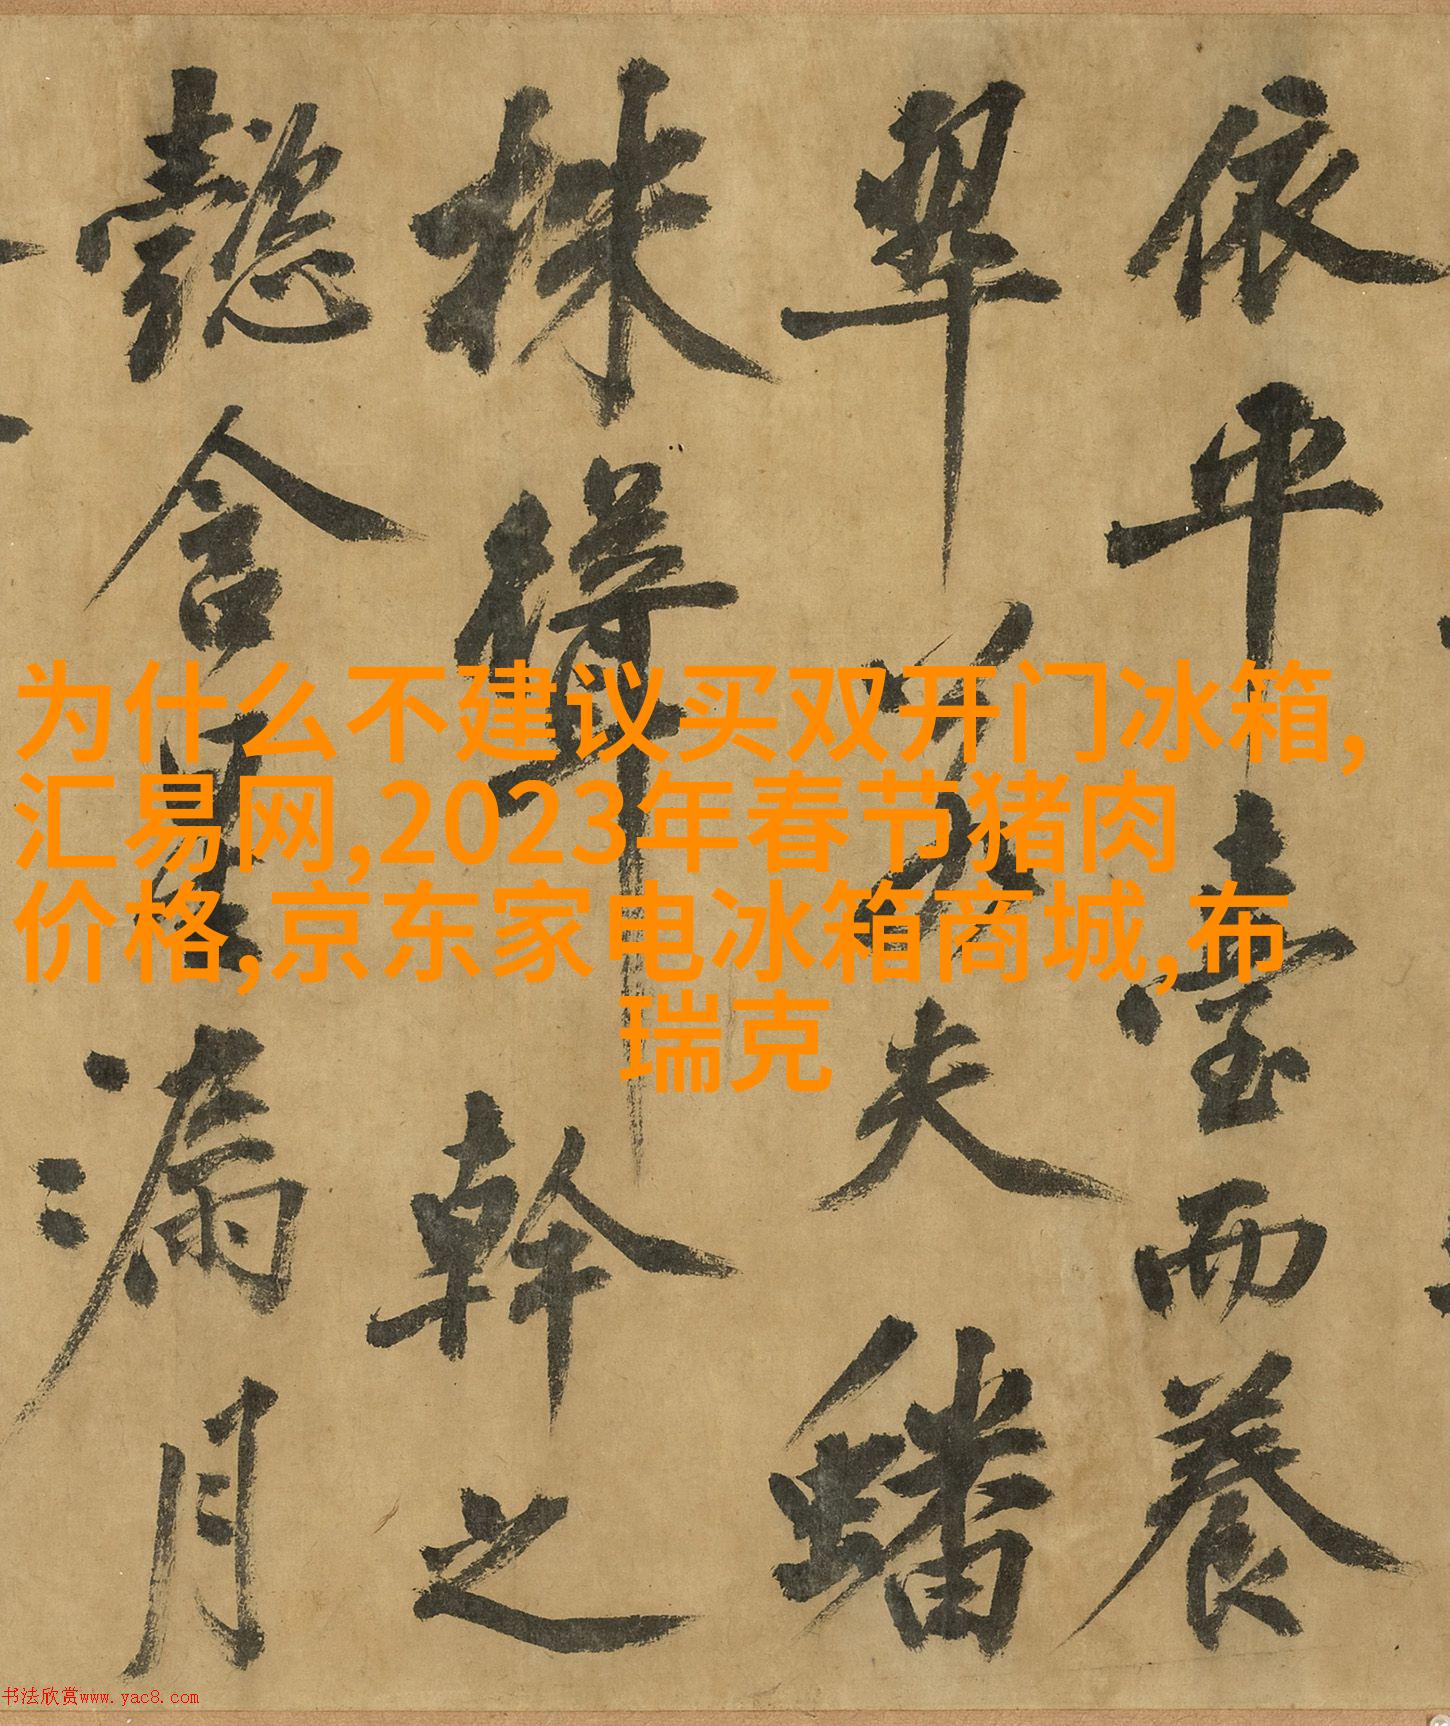 依平臺而養
翠若夫蟠
株得幹之
懿含星漏月
为什么不建议买双开门冰箱,
汇易网,2023年春节猪肉
价格,京东家电冰箱商城,布
瑞克
书法欣赏www.yac8.com